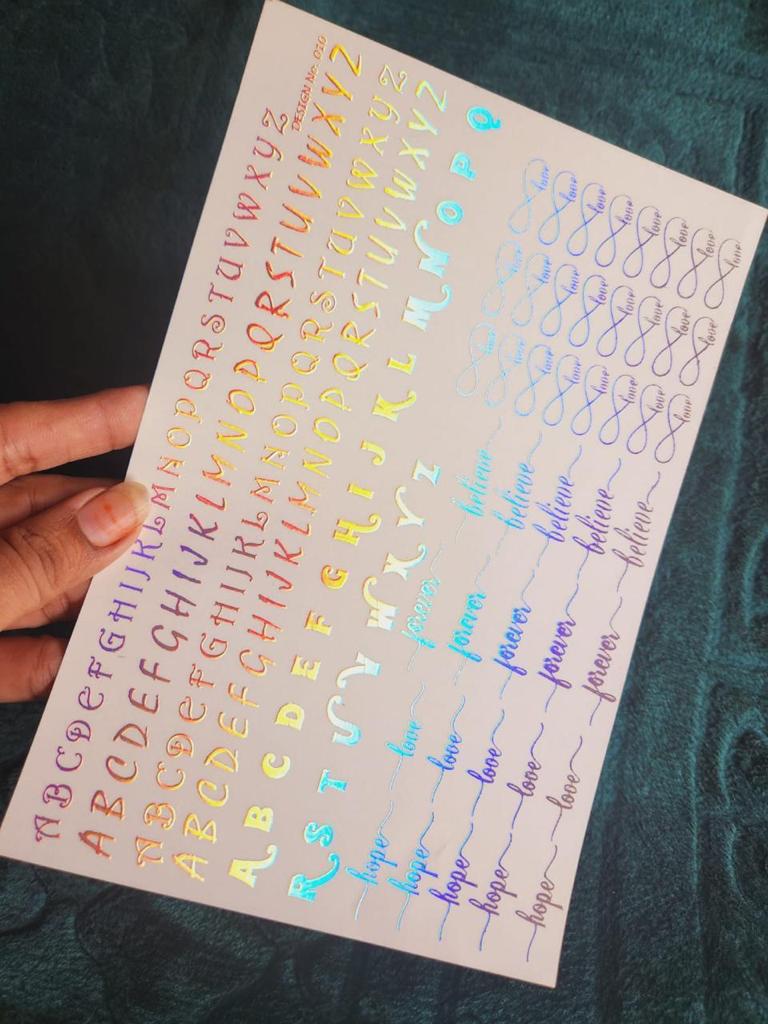 DESIGN No. 010
A B C D E F G H I J K L M N O P Q R S T U V W X Y Z
A B C D E F G H I J K L M N O P Q R S T U V W X Y Z
A B C D E F G H I J K L M N O P Q R S T U V W X Y Z
A B C D E F G H I J K L M N O P Q R S T U V W X Y Z
A B C D E F G H I J K L M N O P Q
R S T U V W X Y Z
hope love forever believe
hope love forever believe
hope love forever believe
hope love forever believe
hope love forever believe
love love love
love love love
love love love
love love love
love love love
love love love
love love love
love love love